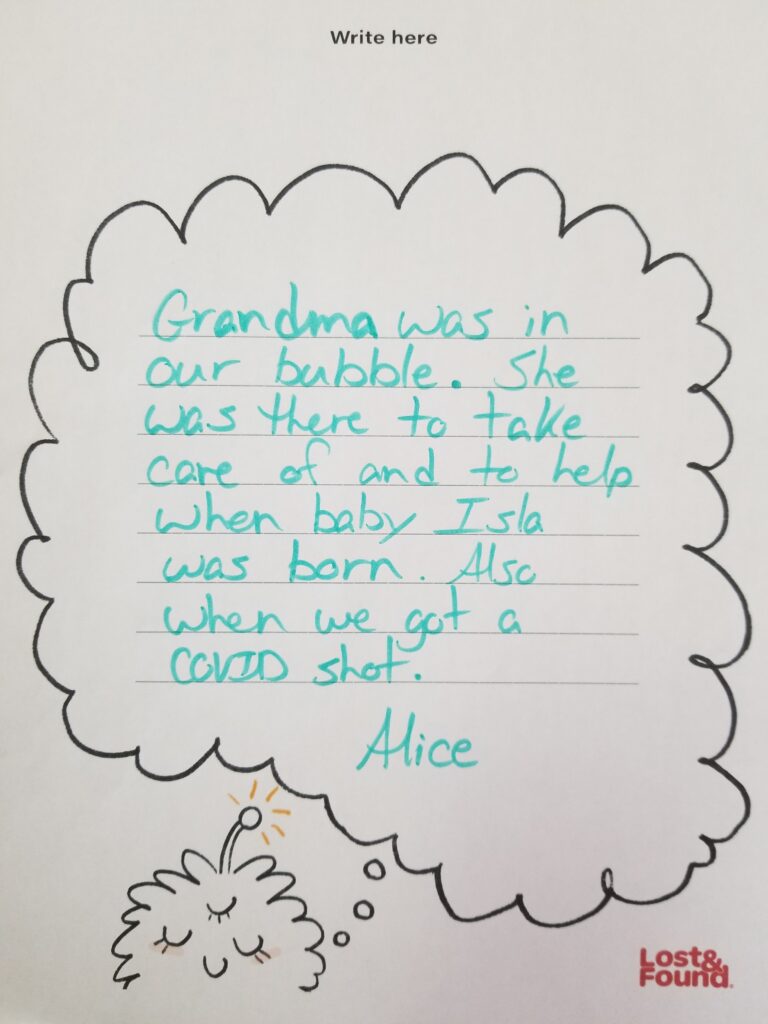 Write here
Grandma was in
our bubble. She
was there to take
care of and to help
when baby Isla
was born. Also
when we got a
COVID shot.
Alice
Lost&
Found.